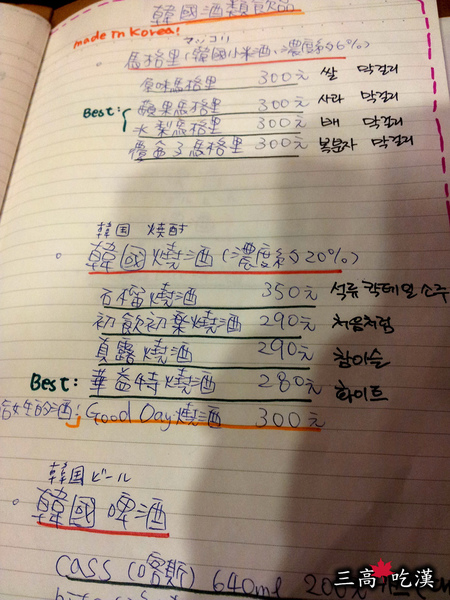 韓國酒類飲品
made in Korea!
マッコリ
馬格里(韓國小米酒、濃度約6%)
原味馬格里 300元 쌀 막걸리
Best: 蘋果馬格里 300元 사과 막걸리
水梨馬格里 300元 배 막걸리
覆盆子馬格里 300元 복분자 막걸리
韓国 焼酎
韓國燒酒(濃度約20%)
石榴燒酒 350元 석류 칵테일 소주
初飲初樂燒酒 290元 처음처럼
真露燒酒 290元 참이슬
Best: 華益特燒酒 280元 화이트
Good Day燒酒 300元
韓国ビール
韓國啤酒
CASS (喀斯) 640ml 200元
三高吃漢